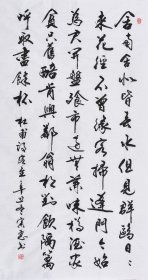 舍南舍北皆春水但見群鷗日日
來花徑不曾緣客掃蓬門今始
為君開盤飧市遠無兼味樽酒家
貧只舊醅肯與鄰翁相對飲隔籬
呼取盡餘杯 杜甫詩客至辛丑